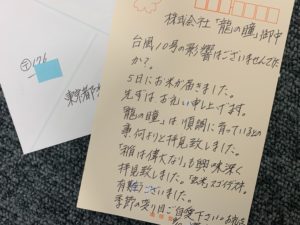 〒176
東京都
株式会社「龍の瞳」御中
台風10号の影響はございませんでした
か?
5日にお米が届きました。
先ずはお礼申し上げます。
「龍の瞳」は順調に育っているとの
事何よりと拝見致しました。
「雑は偉大なり」も興味深く
拝見致しました。「玄米」スゴイデスネ。
有難うございました。
季節の変り目ご自愛下さい。